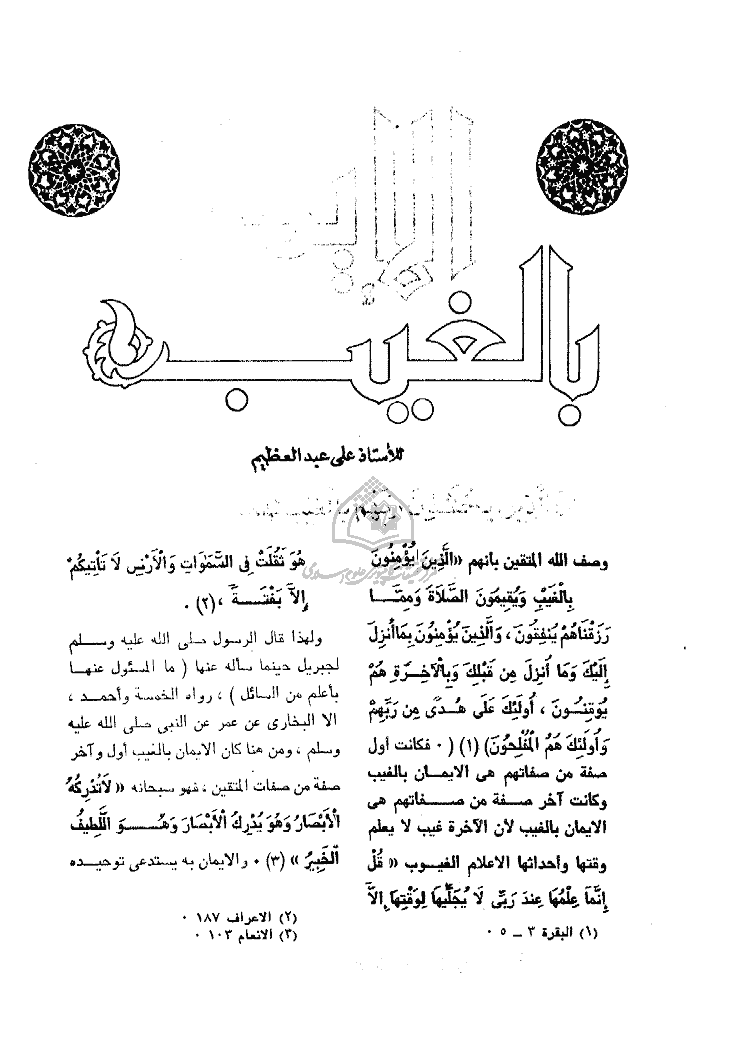 الإيمان
بالغيب
للأستاذ على عبد العظيم
وصف الله المتقين بأنهم «الَّذِينَ يُؤْمِنُونَ
بِالْغَيْبِ وَيُقِيمُونَ الصَّلَاةَ وَمِمَّا
رَزَقْنَاهُمْ يُنفِقُونَ ، وَالَّذِينَ يُؤْمِنُونَ بِمَا أُنزِلَ
إِلَيْكَ وَمَا أُنزِلَ مِن قَبْلِكَ وَبِالْآخِرَةِ هُمْ
يُوقِنُونَ ، أُولَئِكَ عَلَى هُدًى مِن رَبِّهِمْ
وَأُولَئِكَ هُمُ الْمُفْلِحُونَ) (١) ( ٠ فكانت أول
صفة من صفاتهم هى الايمان بالغيب
وكانت آخر صفة من صفاتهم هى
الايمان بالغيب لأن الآخرة غيب لا يعلم
وقتها وأحداثها الاعلام الغيوب « قُلْ
إِنَّمَا عِلْمُهَا عِندَ رَبِّى لَا يُجَلِّيهَا لِوَقْتِهَا إِلاَّ
(١) البقرة ٣ – ٥ ٠
هُوَ ثَقُلَتْ فِى السَّمَوَاتِ وَالْأَرْضِ لَا تَأْتِيكُمْ
إِلاَّ بَغْتَةً ، (٢) ٠
ولهذا قال الرسول صلى الله عليه وسلم
لجبريل حينما سأله عنها ( ما المسئول عنها
بأعلم من السائل ) ، رواه الخمسة وأحمد ،
الا البخارى عن عمر عن النبى صلى الله عليه
وسلم ، ومن هنا كان الايمان بالغيب أول وآخر
صفة من صفات المتقين ، فهو سبحانه « لَاتُدْرِكُهُ
الْأَبْصَارُ وَهُوَ يُدْرِكُ الْأَبْصَارَ وَهُوَ اللَّطِيفُ
الْخَبِيرُ » (٣) ٠ والايمان به يستدعى توحيده
(٢) الاعراف ١٨٧ ٠
(٣) الانعام ١٠٣ ٠